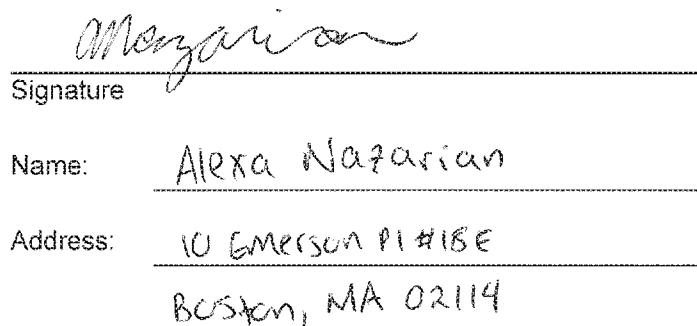 ANazarian
Signature
Name: Alexa Nazarian
Address: 10 Emerson Pl #18E
Boston, MA 02114